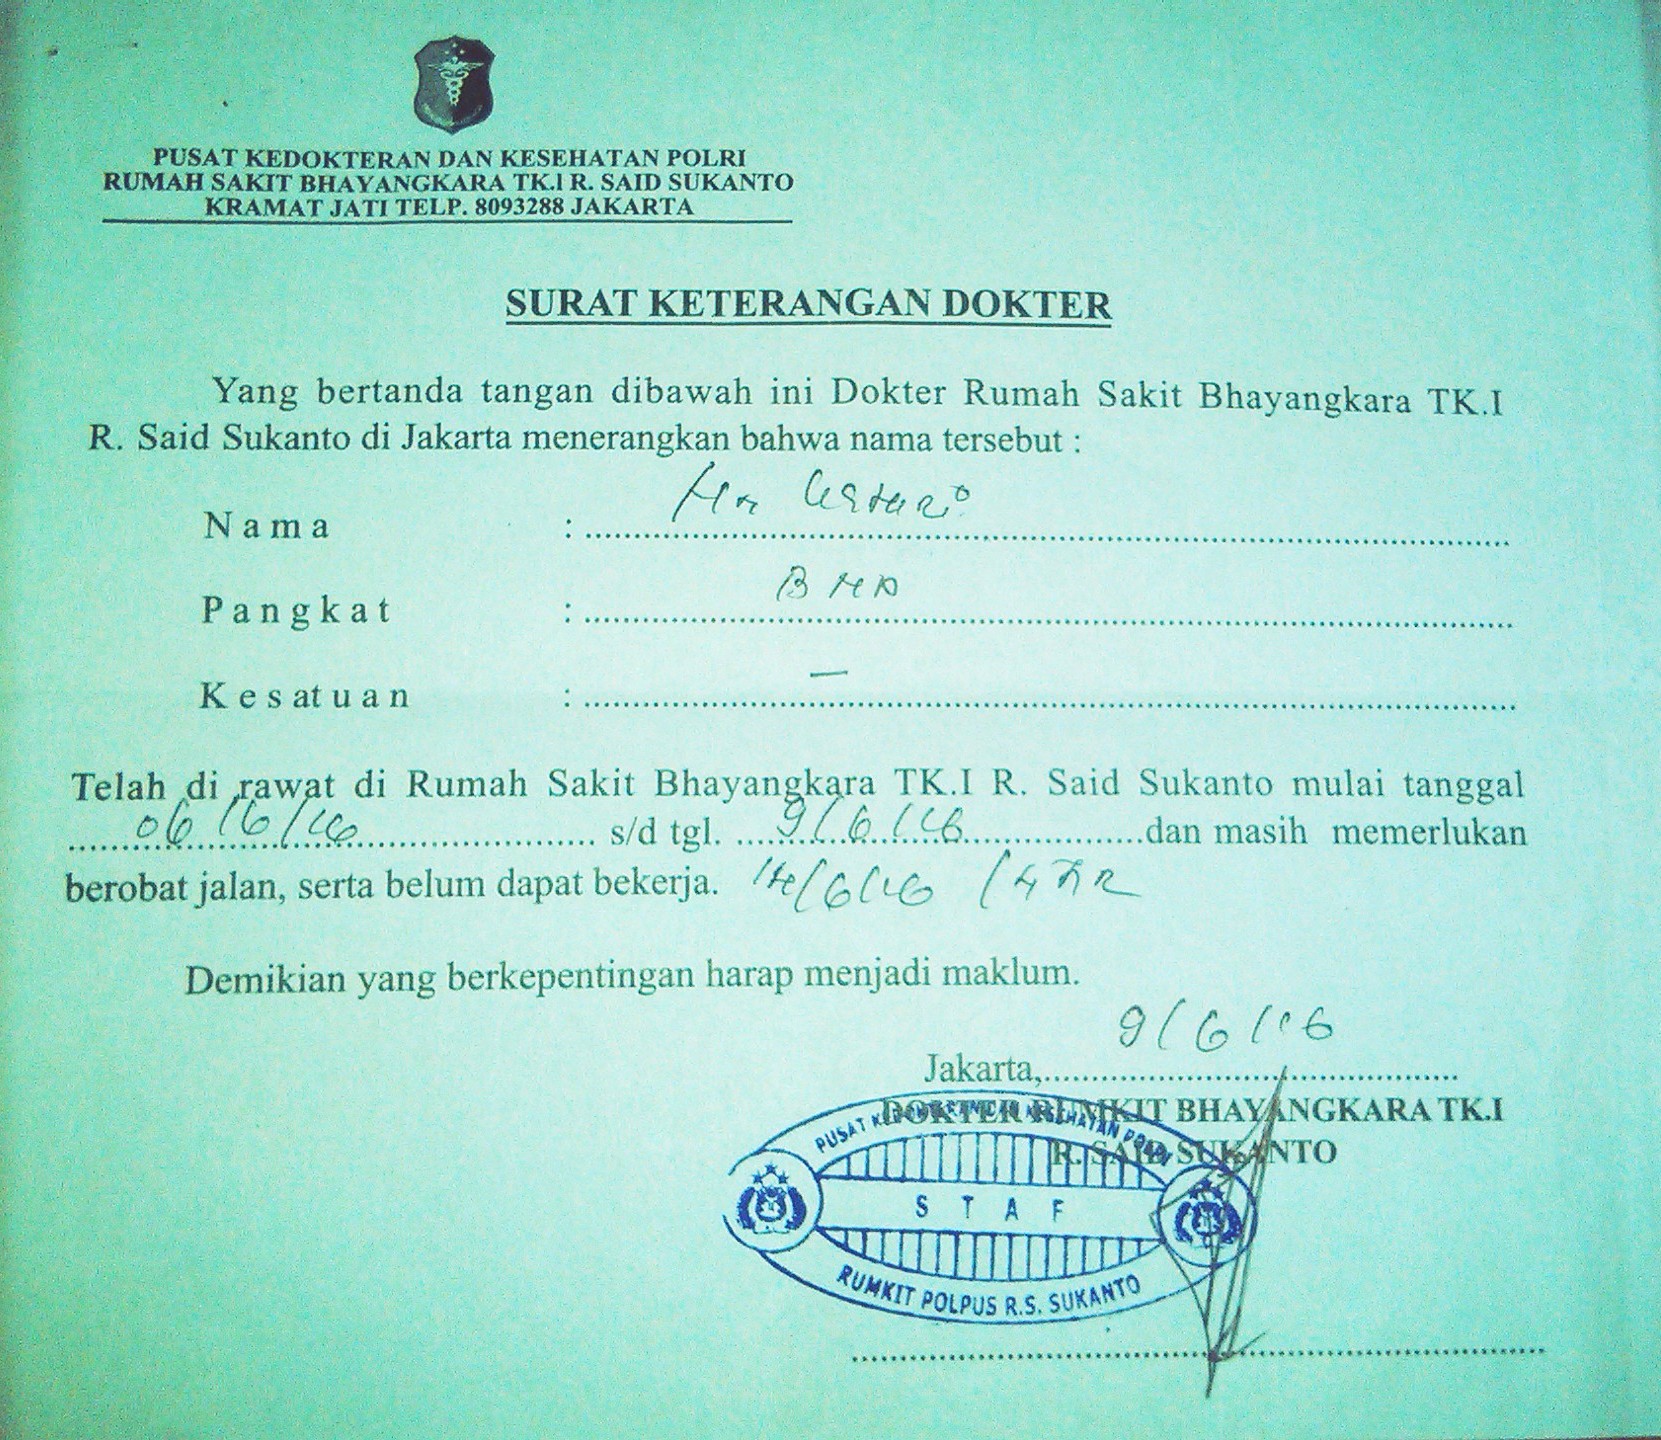 PUSAT KEDOKTERAN DAN KESEHATAN POLRI
RUMAH SAKIT BHAYANGKARA TK.I R. SAID SUKANTO
KRAMAT JATI TELP. 8093288 JAKARTA
SURAT KETERANGAN DOKTER
Yang bertanda tangan dibawah ini Dokter Rumah Sakit Bhayangkara TK.I
R. Said Sukanto di Jakarta menerangkan bahwa nama tersebut :
Nama :
Pangkat :
Kesatuan : —
Telah di rawat di Rumah Sakit Bhayangkara TK.I R. Said Sukanto mulai tanggal
06/6/16 s/d tgl. 9/6/16 dan masih memerlukan
berobat jalan, serta belum dapat bekerja. 14/6/16
Demikian yang berkepentingan harap menjadi maklum.
Jakarta, 9/6/16
DOKTER RUMKIT BHAYANGKARA TK.I
R. SAID SUKANTO
PUSAT KEDOKTERAN DAN KESEHATAN POLRI
STAF
RUMKIT POLPUS R.S. SUKANTO